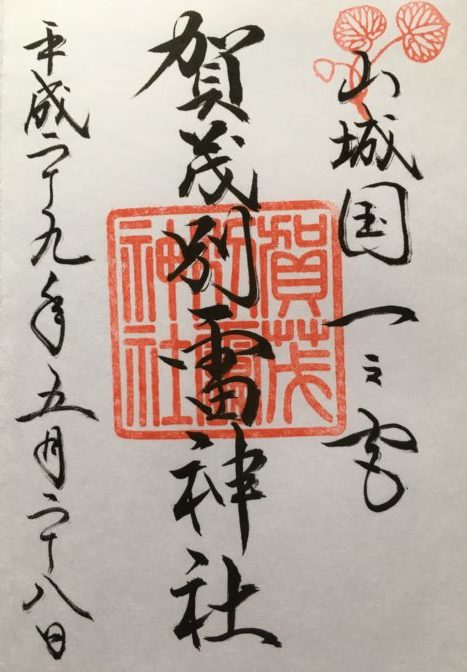 山城国一之宮
賀茂別雷神社
平成二十九年五月二十八日
賀茂
別雷
神社